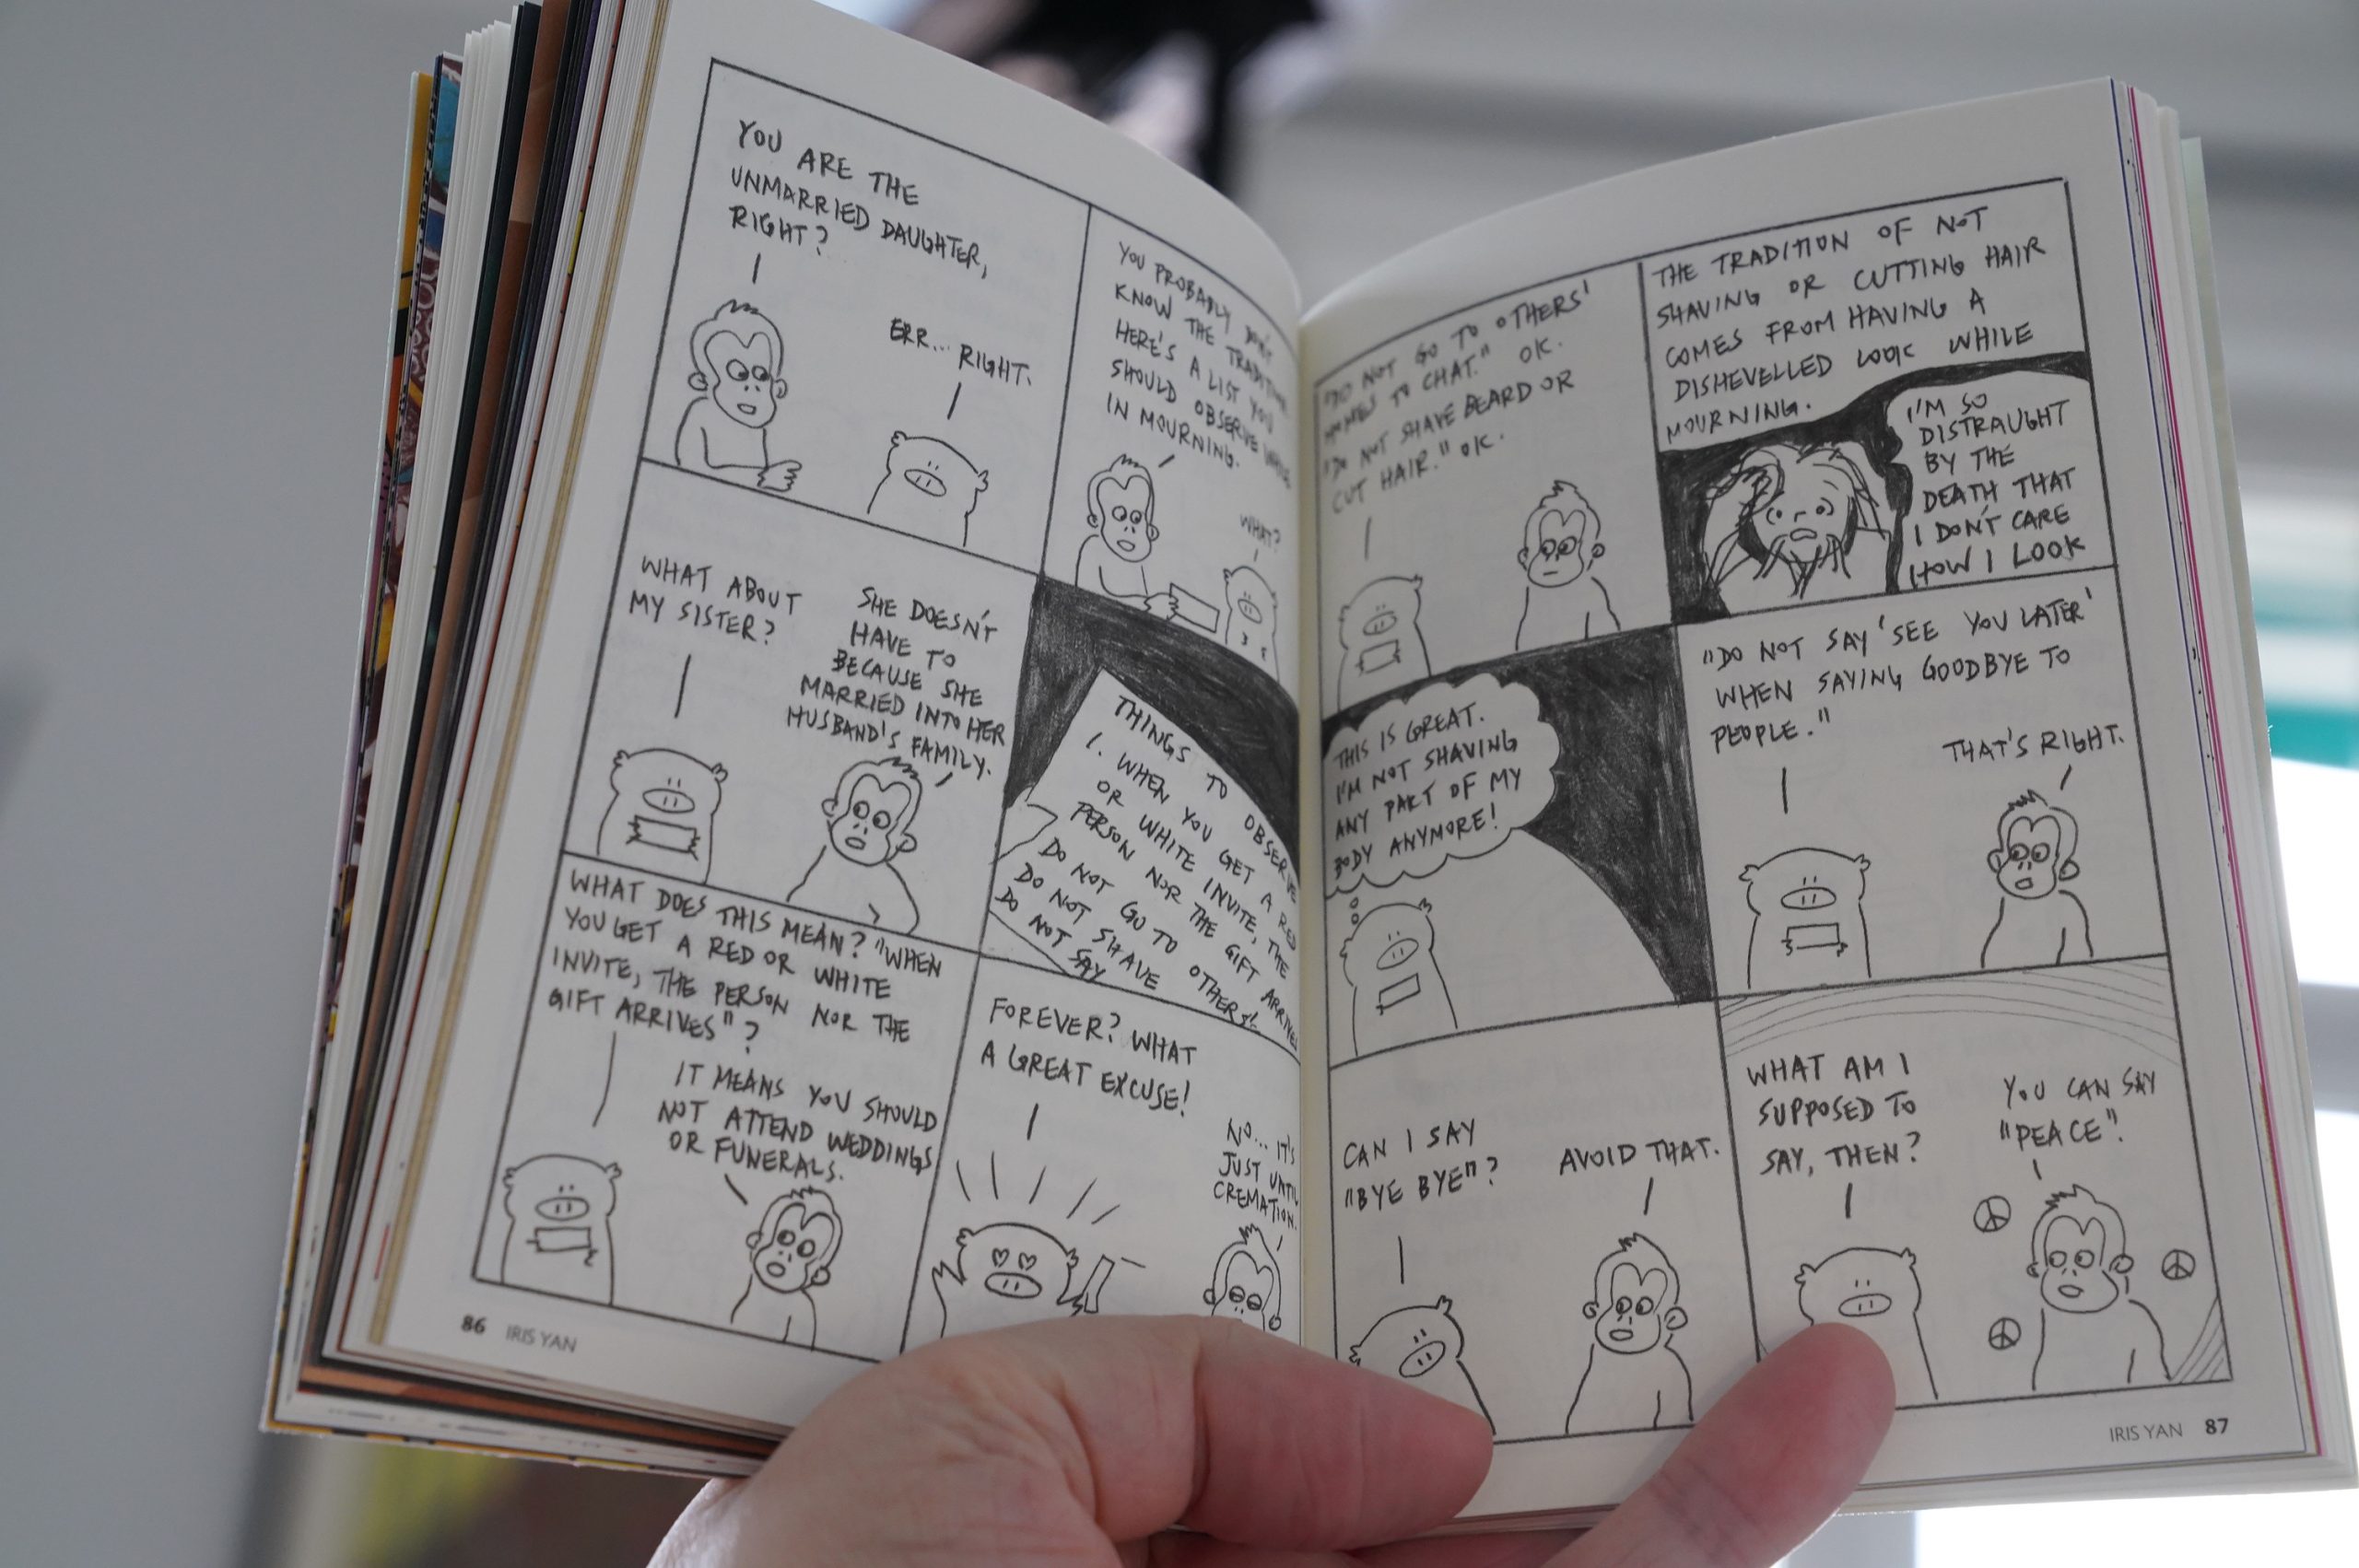 YOU ARE THE
UNMARRIED DAUGHTER,
RIGHT?
ERR... RIGHT.
YOU PROBABLY DON'T
KNOW THE TRADITIONS.
HERE'S A LIST YOU
SHOULD OBSERVE
IN MOURNING.
WHAT?
WHAT ABOUT
MY SISTER?
SHE DOESN'T
HAVE TO
BECAUSE SHE
MARRIED INTO HER
HUSBAND'S FAMILY.
THINGS TO OBSERVE
1. WHEN YOU GET A RED
OR WHITE INVITE, THE
PERSON NOR THE GIFT ARRIVES
DO NOT GO TO OTHERS'
DO NOT SHAVE
DO NOT SAY
WHAT DOES THIS MEAN? "WHEN
YOU GET A RED OR WHITE
INVITE, THE PERSON NOR THE
GIFT ARRIVES"?
IT MEANS YOU SHOULD
NOT ATTEND WEDDINGS
OR FUNERALS.
FOREVER? WHAT
A GREAT EXCUSE!
NO... IT'S
JUST UNTIL
CREMATION.
86 IRIS YAN
"DO NOT GO TO OTHERS'
HOMES TO CHAT." OK.
"DO NOT SHAVE BEARD OR
CUT HAIR." OK.
THE TRADITION OF NOT
SHAVING OR CUTTING HAIR
COMES FROM HAVING A
DISHEVELLED LOOK WHILE
MOURNING.
I'M SO
DISTRAUGHT
BY THE
DEATH THAT
I DON'T CARE
HOW I LOOK
THIS IS GREAT.
I'M NOT SHAVING
ANY PART OF MY
BODY ANYMORE!
"DO NOT SAY 'SEE YOU LATER'
WHEN SAYING GOODBYE TO
PEOPLE."
THAT'S RIGHT.
CAN I SAY
"BYE BYE"?
AVOID THAT.
WHAT AM I
SUPPOSED TO
SAY, THEN?
YOU CAN SAY
"PEACE".
IRIS YAN 87